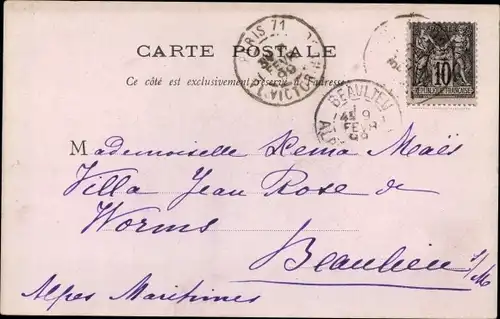 PARIS 71
PL. VICTOR H
CARTE POSTALE
Ce côté est exclusivement réservé à l'adresse
10
BEAULIEU
9
FEVR
M ademoiselle Lema Maës
Villa Jean Rose de
Worms
Beaulieu s/M
Alpes Maritimes